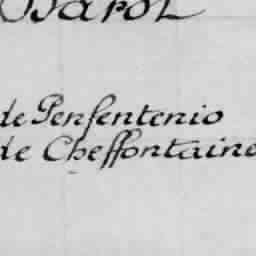 de Penfentenio
de Cheffontaine